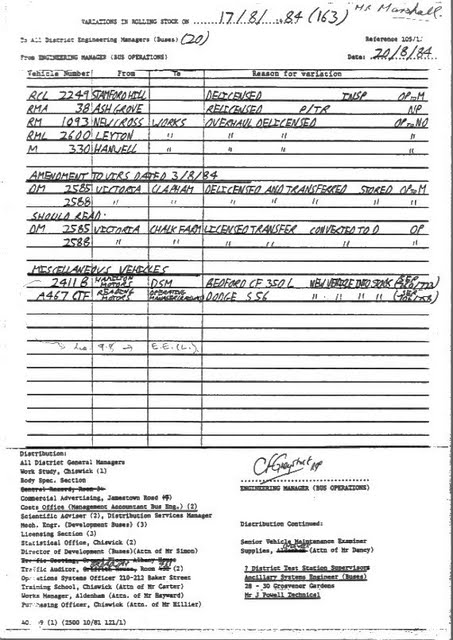 Mr Marshall.
VARIATIONS IN ROLLING STOCK ON 17/8/ 1984 (163)
To All District Engineering Managers (Buses) (20)
Reference 105/1
From ENGINEERING MANAGER (BUS OPERATIONS)
Date: 20/8/84
Vehicle Number From To Reason for variation
RCL 2249 STAMFORD HILL DELICENSED INSP OPnM
RMA 38 ASH GROVE RELICENSED P/TR NP
RM 1093 NEW CROSS WORKS OVERHAUL DELICENSED OPnNO
RML 2600 LEYTON " " " "
M 330 HANWELL " " " "
AMENDMENT TO VIRS DATED 3/8/84
DM 2585 VICTORIA CLAPHAM DELICENSED AND TRANSFERRED STORED OPnM
2588 " " " " " " "
SHOULD READ:
DM 2585 VICTORIA CHALK FARM LICENSED TRANSFER CONVERTED TO D OP
2588 " " " " " "
MISCELLANEOUS VEHICLES
2411 B HAMILTON MOTORS DSM BEDFORD CF 350 L NEW VEHICLE INTO STOCK
A467 CTF READING MOTORS DODGE S56 " " " "
9.8 → E.E.(L.)
Distribution:
All District General Managers
Work Study, Chiswick (1)
Body Spec. Section
General Record, Room
Commercial Advertising, Jamestown Road
Costs Office (Management Accountant Bus Eng.) (2)
Scientific Adviser (2), Distribution Services Manager
Mech. Engr. (Development Buses) (3)
Licensing Section (2)
Statistical Office, Chiswick (2)
Director of Development (Buses)(Attn of Mr Simon)
Traffic Auditor, Room (2)
Operations Systems Officer 210-212 Baker Street
Training School, Chiswick (Attn of Mr Carter)
Works Manager, Aldenham (Attn. of Mr Hayward)
Purchasing Officer, Chiswick (Attn. of Mr Hillier)
(1) (2500 10/81 121/1)
ENGINEERING MANAGER (BUS OPERATIONS)
Distribution Continued:
Senior Vehicle Maintenance Examiner
Supplies, Aldenham (Attn of Mr Dancy)
7 District Test Station Supervisors
Ancillary Systems Engineer (Buses)
28 - 30 Grosvenor Gardens
Mr J Powell Technical